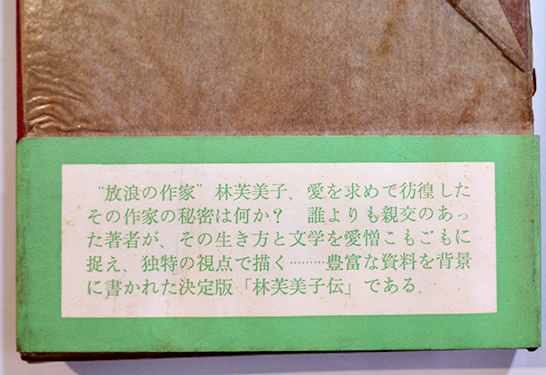 “放浪の作家”林芙美子、愛を求めて彷徨した
その作家の秘密は何か？　誰よりも親交のあっ
た著者が、その生き方と文学を愛憎こもごもに
捉え、独特の視点で描く………豊富な資料を背景
に書かれた決定版「林芙美子伝」である。